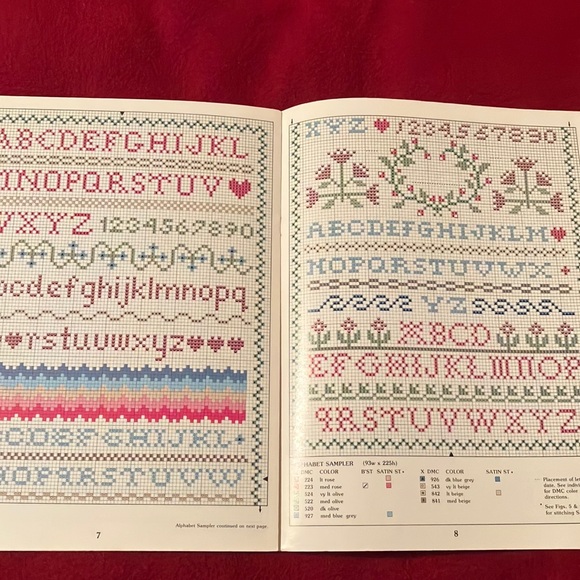 ABCDEFGHIJKL
MNOPQRSTUV
WXYZ 1234567890
abcdefghijklmnopq
rstuvwxyz
ABCDEFGHIJKL
MNOPQRSTUVWX
Alphabet Sampler continued on next page.
7
XYZ 1234567890
ABCDEFGHIJKLM
NOPQRSTUVWX
YZ
ABCD
EFGHIJKLMNOP
QRSTUVWXYZ
ALPHABET SAMPLER (93w x 225h)
DMC COLOR B'ST SATIN ST* X DMC COLOR SATIN ST*
224 lt rose 926 dk blue grey
223 med rose 543 vy lt beige
524 vy lt olive 842 lt beige
522 lt olive 841 med beige
520 dk olive
927 med blue grey
Placement of
date. See
for DMC color
directions.
* See Figs. 5 &
for stitching
8